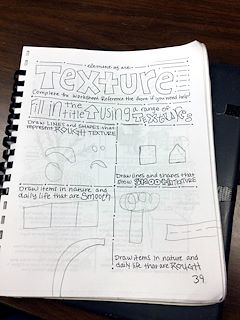 element of art
Texture
Complete the Worksheet. Reference the Book if you need help!
Fill in the title ↑ using a range of TEXTURES
Draw LINES and SHAPES that
represent ROUGH TEXTURE
Draw lines and shapes that
show SMOOTH TEXTURE
Draw items in nature and
daily life that are Smooth
Draw items in nature and
daily life that are ROUGH
39